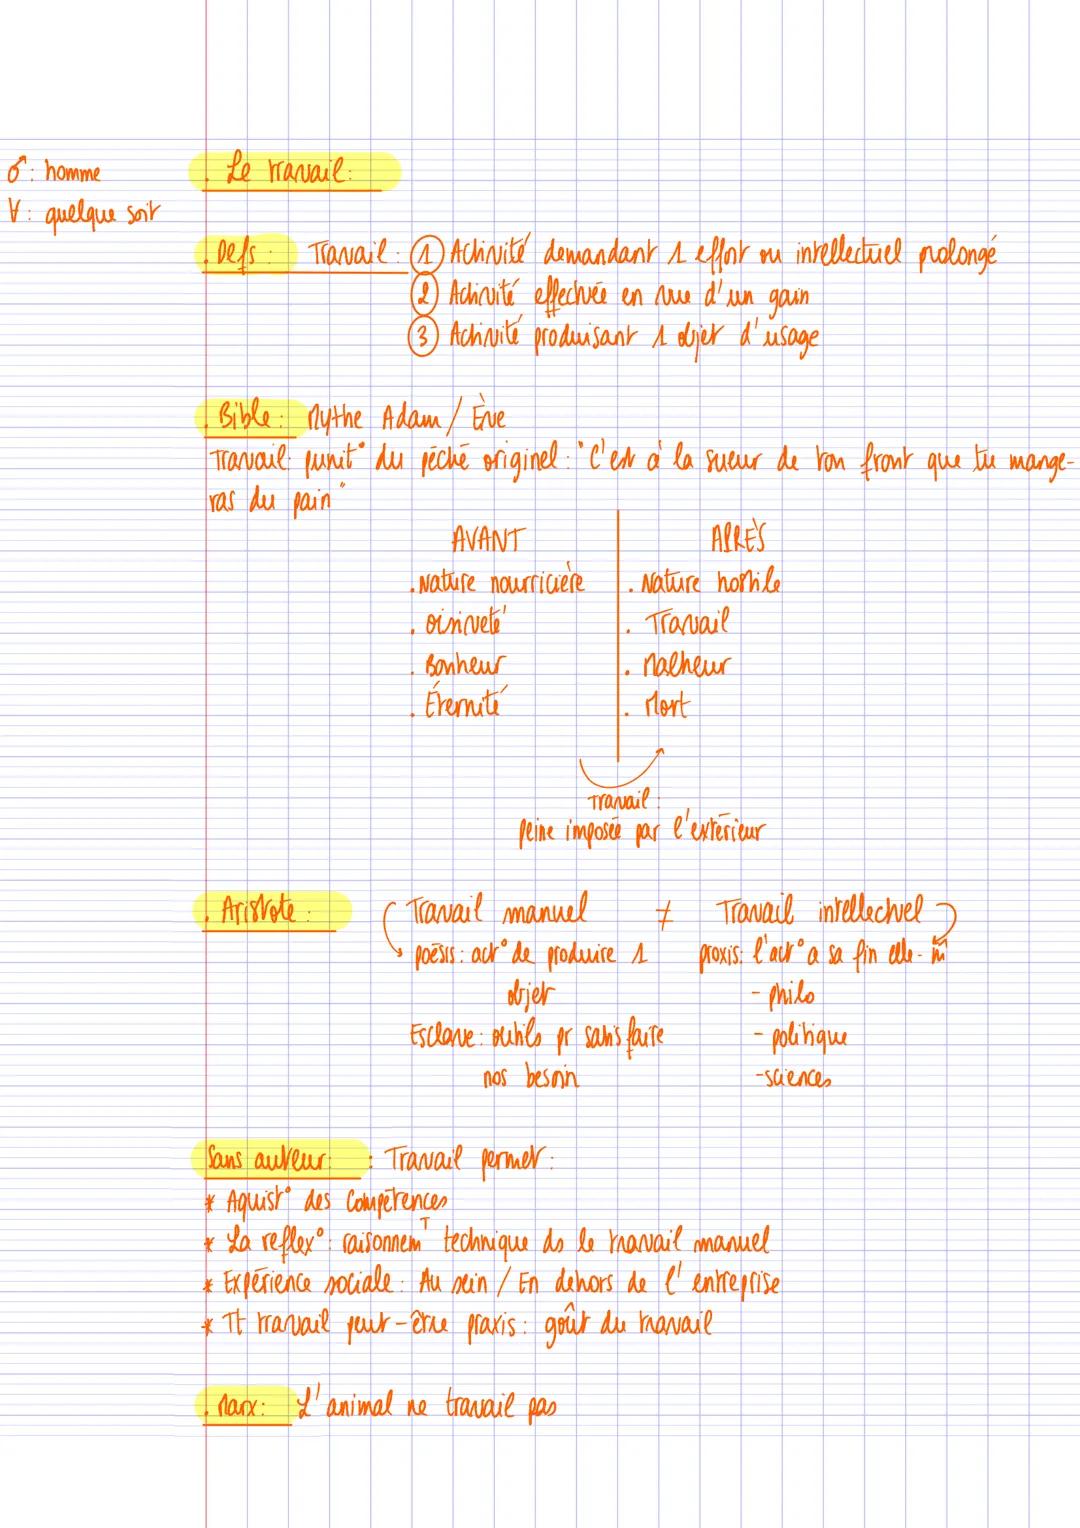 ♂: homme
∀: quelque soit
. Le travail:
. Defs: Travail: ① Activité demandant 1 effort ou intellectuel prolongé
② Activité effectuée en vue d'un gain
③ Activité produisant 1 objet d'usage
. Bible: Mythe Adam / Ève
Travail: punit° du péché originel: "C'est à la sueur de ton front que tu mange-
ras du pain"
AVANT
. Nature nourricière
. oisiveté
. Bonheur
. Éternité
APRÈS
. Nature hostile
. Travail
. Malheur
. Mort
Travail:
Peine imposée par l'extérieur
. Aristote: Travail manuel ≠ Travail intellectuel
poësis: act° de produire 1
objet
Esclave: outils pr satisfaire
nos besoin
proxis: l'act° a sa fin elle-m̂
- philo
- politique
- sciences
Sans auteur: : Travail permet:
* Aquist° des compétences
* La reflex°: raisonnemT technique ds le travail manuel
* Expérience sociale: Au sein / En dehors de l'entreprise
* Tt travail peut-être praxis: goût du travail
. Marx: L'animal ne travail pas